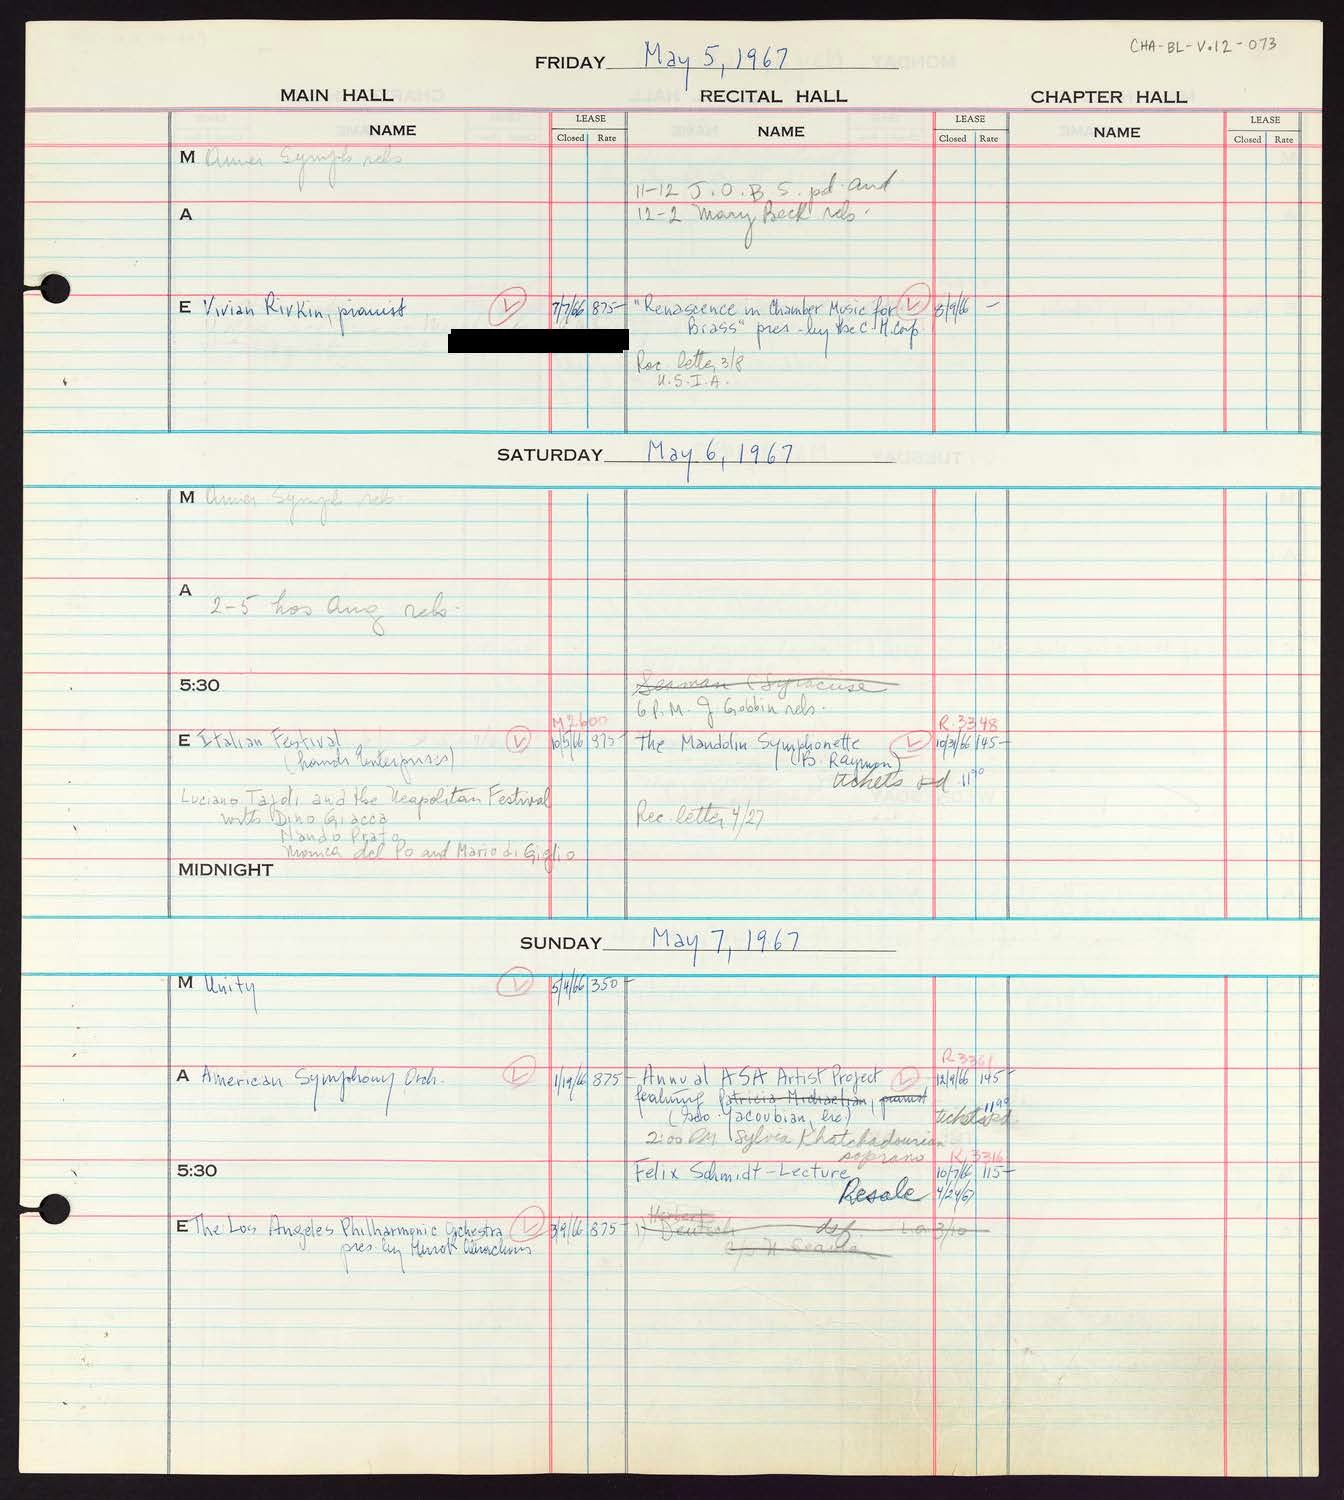 CHA-BL-V.12-073
FRIDAY May 5, 1967
MAIN HALL RECITAL HALL CHAPTER HALL
NAME LEASE NAME LEASE NAME LEASE
Closed Rate Closed Rate Closed Rate
M Amer Symph rehs
11-12 J.O.B.S. pd. and
A 12-2 Mary Beck rehs.
E Vivian Rivkin, pianist 7/7/66 875- "Renascence in Chamber Music for 8/9/66 -
Brass" pres. by the C.H. Corp.
Rec. letter 3/8
U.S.I.A.
SATURDAY May 6, 1967
M Amer Symph reh.
A
2-5 Los Ang rehs.
5:30 Seaman (Syracuse
6 P.M. J Gobbin rehs.
M2600 R.3348
E Italian Festival 10/5/66 975- The Mandolin Symphonette 10/31/66 145-
(B. Raymon)
tickets
Luciano Tajoli and the Neapolitan Festival
with Dino Giacca Rec. letter 4/27
Nando Prato
Monica del Po and Mario di Giglio
MIDNIGHT
SUNDAY May 7, 1967
M Unity 5/4/66 350-
R3361
A American Symphony Orch. 1/19/66 875- Annual ASA Artist Project 12/9/66 145-
featuring Patricia Michaelian, pianist
(Geo. Yacoubian, Exc) tickets
2:00 PM Sylvia Khatchadourian
soprano R.3316
5:30 Felix Schmidt-Lecture 10/7/66 115-
Resale 4/24/67
Herbert
E The Los Angeles Philharmonic Orchestra 3/9/66 875- 1) Deutsch def. 3/10
pres. by Hurok Attractions